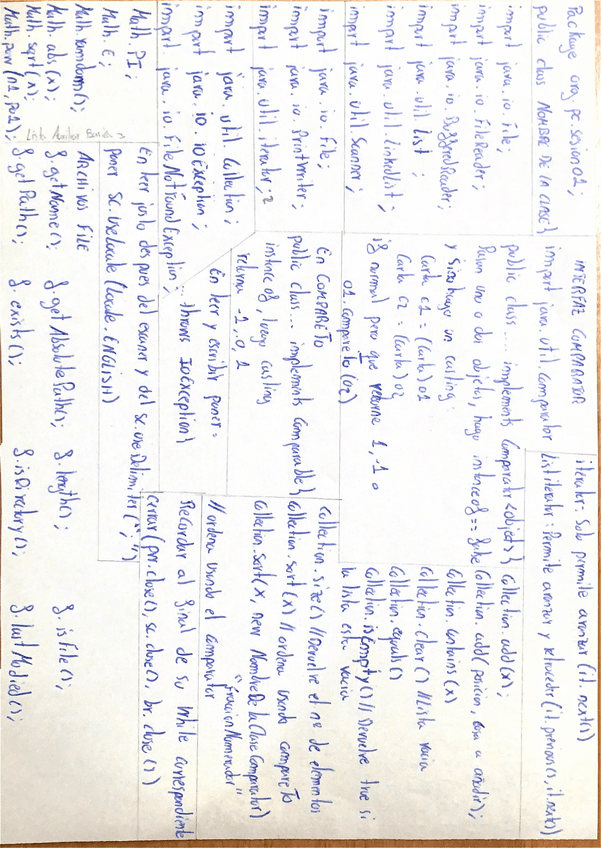 Package org.pc.sesion02;
public class NOMBRE DE LA CLASE}
import java.io.File;
import java.io.FileReader;
import java.io.BufferedReader;
import java.util.List;
import java.util.LinkedList;
import java.util.Scanner;
import java.io.File;
import java.io.PrintWriter;
import java.util.Iterator;
import java.util.Collection;
import java.io.IOException;
import java.io.FileNotFoundException;
INTERFAZ COMPARADOR
import java.util.Comparator
public class... implements Comparator <Object>}
Pasan uno o dos objetos, hago instanceof == false
y sino hago un casting:
Carta c1 = (Carta) o1
Carta c2 = (Carta) o2
if normal pero que retorne 1, -1 o
o1.compareTo(o2)
En COMPARETO
public class... implements Comparable}
instanceof, luego casting
retorna -1, 0, 1
En leer y escribir poner =
... throws IOException}
iterator: Solo permite avanzar (it.next())
ListIterator: Permite avanzar y retroceder (it.previous(), it.next())
Collection.add(x);
Collection.add(posicion, cosa a añadir);
Collection.contains(x)
Collection.clear() //Lista vacia
Collection.equals()
Collection.isEmpty() // Devuelve true si
la lista esta vacia
Collection.size() //Devuelve el nº de elementos
Collection.sort(x) // ordena usando compareTo
Collection.sort(x, new NombreDeLaClaseComparator)
"FraccionNumerador"
// ordena usando el comparator
Recordar al final de su while correspondiente
cerrar (prr.close(), sc.close(), br.close())
Math.PI;
Math.E;
Math.random();
Math.abs(x);
Math.sqrt(x);
Math.pow(n1, po1);
En leer justo despues del scanner y del sc.useDelimiter(",");
poner sc.useLocale(Locale.ENGLISH)
Lista Auxiliar
ARCHIVOS FILE
f.getName();
f.getPath();
f.getAbsolutePath();
f.exists();
f.length();
f.isDirectory();
f.isFile();
f.lastModied();